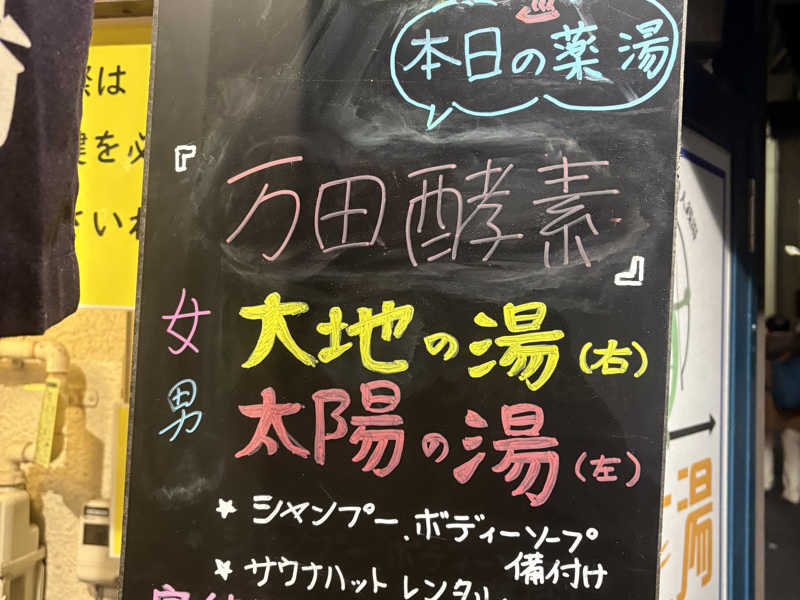 本日の薬湯
『万田酵素』
女 大地の湯(右)
男 太陽の湯(左)
★ シャンプー、ボディーソープ
備付け
★ サウナハット レンタル
際は
を必
さいね
湯